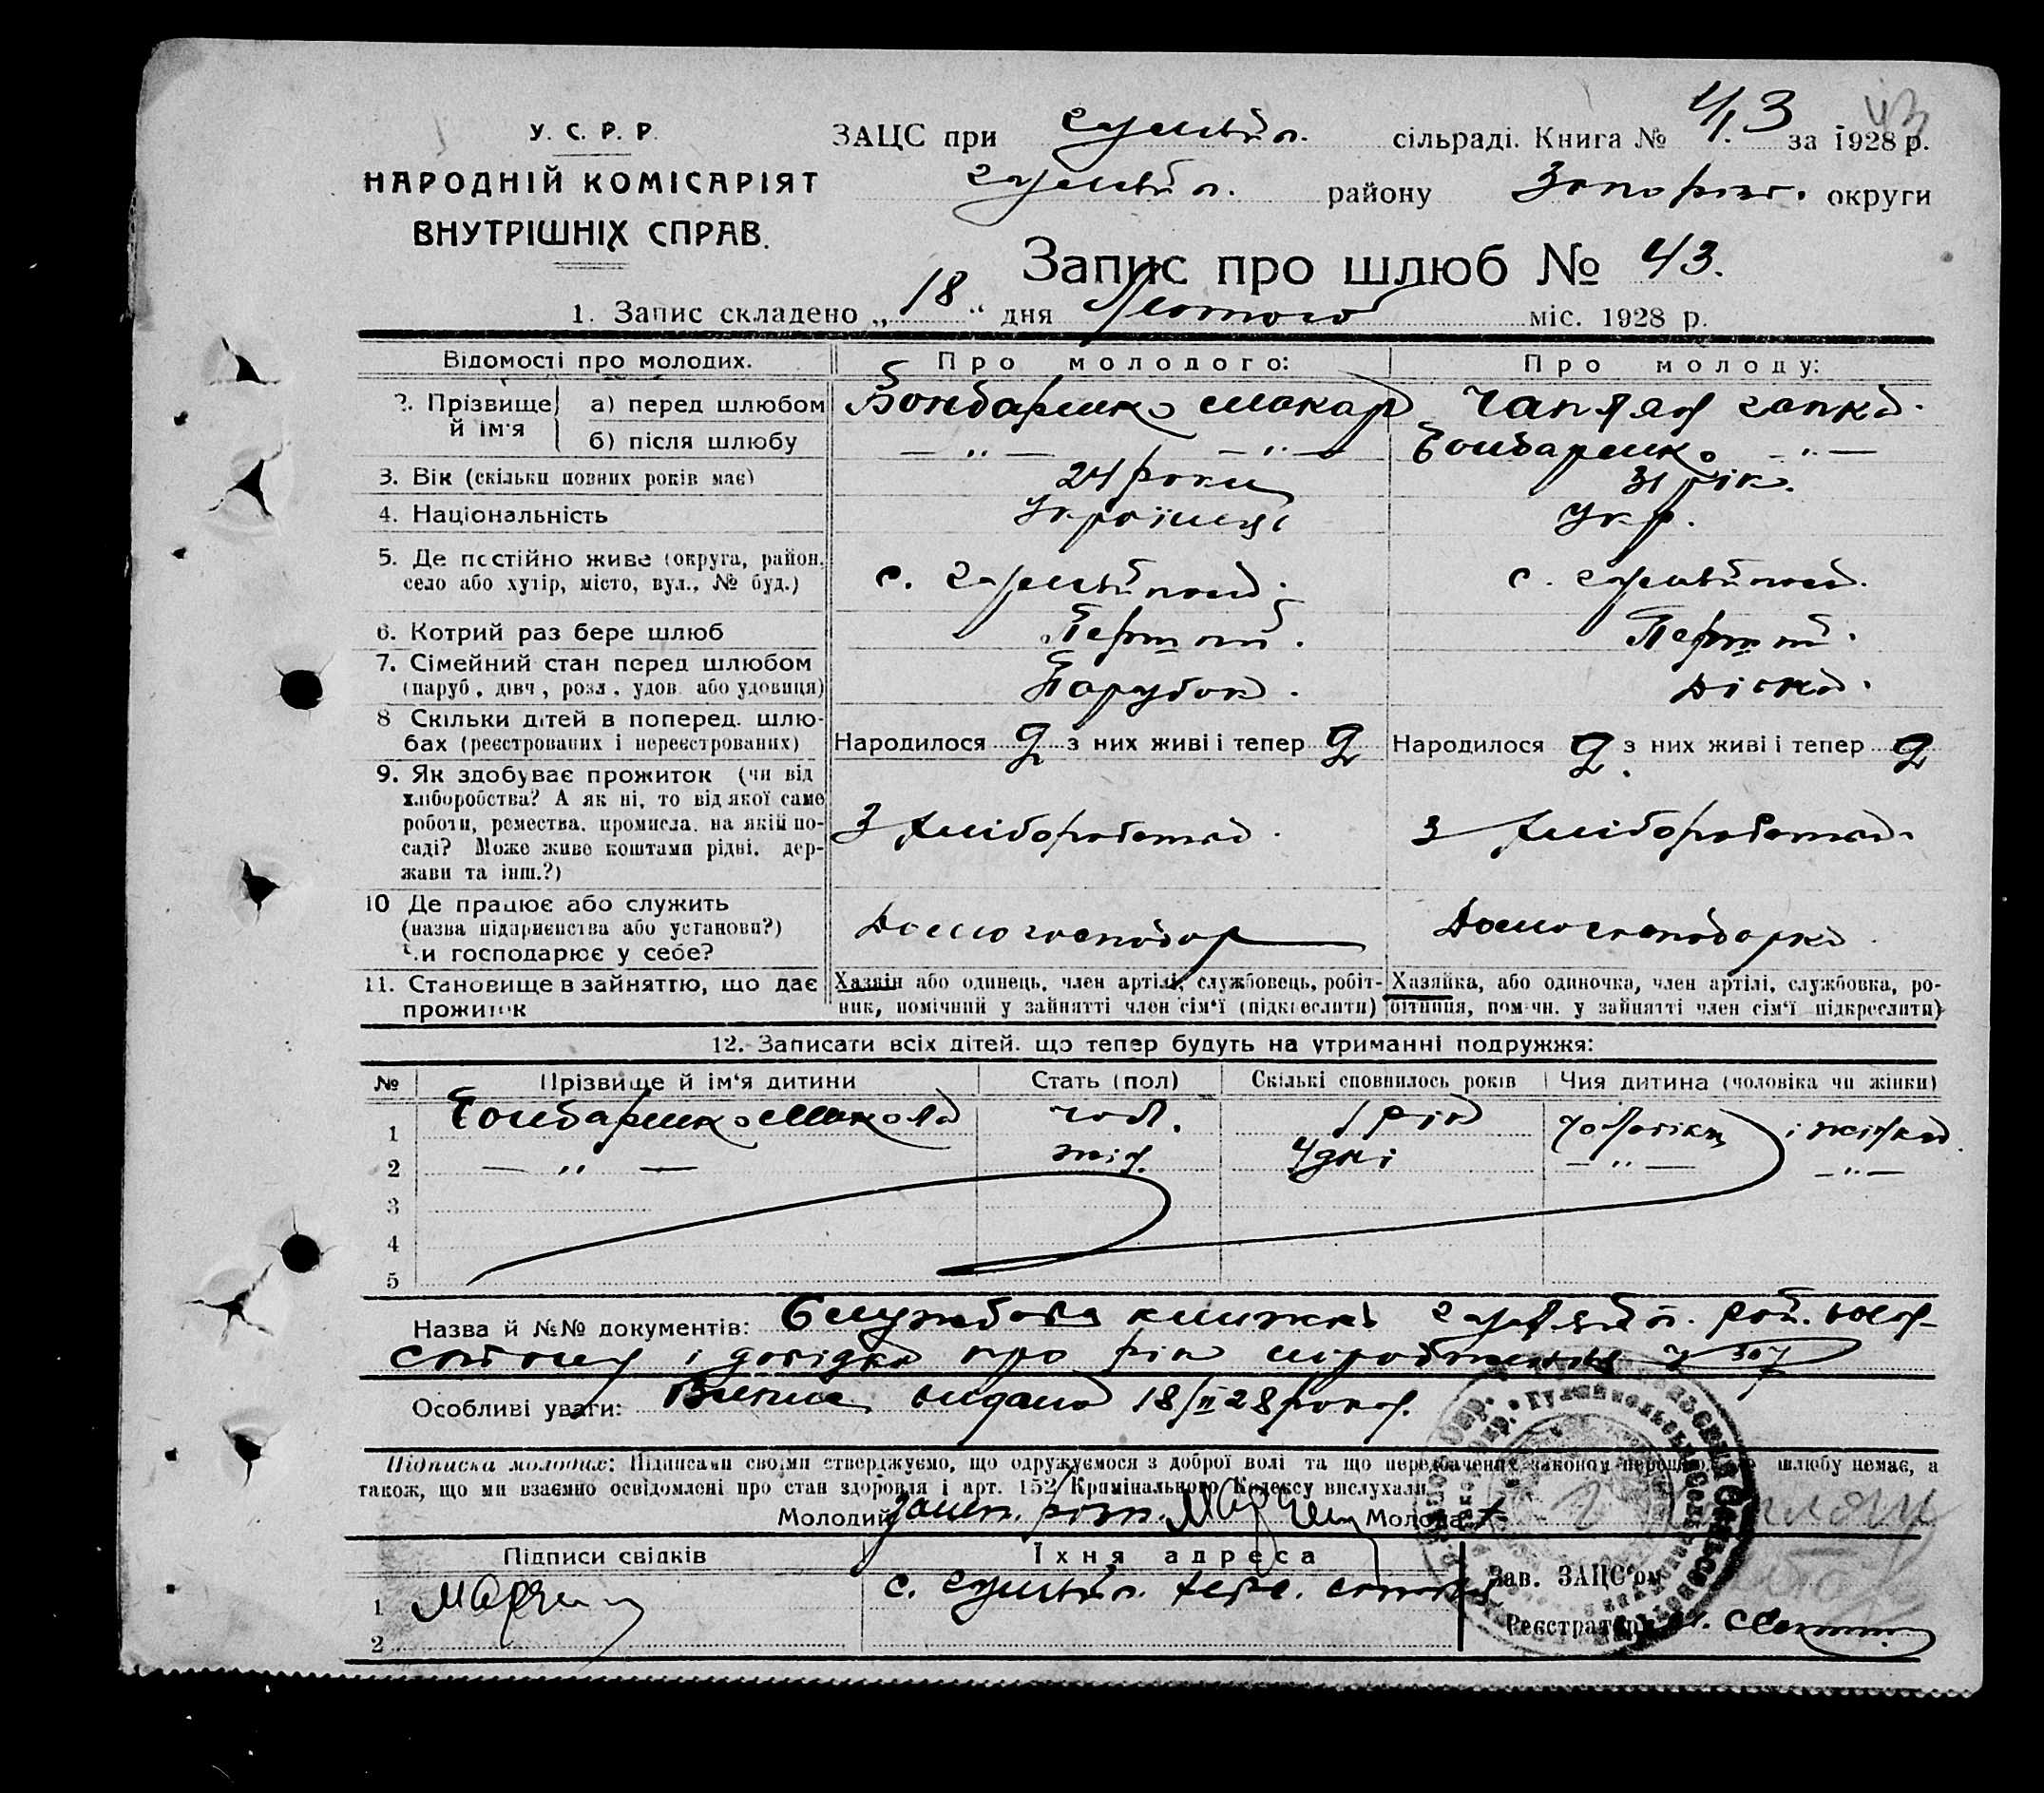 У. С. Р. Р.
НАРОДНІЙ КОМІСАРІЯТ
ВНУТРІШНІХ СПРАВ.
ЗАЦС при Гуляйп. сільраді. Книга № 43 за 1928 р.
43
Гуляйп. району Запоріз. округи
Запис про шлюб № 43.
1. Запис складено „ 18 “ дня Лютого міс. 1928 р.
Відомості про молодих. Про молодого: Про молоду:
2. Прізвище й ім'я
а) перед шлюбом Бондаренко Макар Гапка
б) після шлюбу — „ — — „ — Бондаренко — „ —
3. Вік (скільки повних років має) 24 роки 31 рік.
4. Національність Українець Укр.
5. Де постійно живе (округа, район, село або хутір, місто, вул., № буд.) с. Гуляйполе. с. Гуляйполе.
6. Котрий раз бере шлюб Перший. Перший.
7. Сімейний стан перед шлюбом (паруб., дівч., розл., удов. або удовиця) Парубок. Дівка.
8 Скільки дітей в поперед. шлюбах (реєстрованих і нереєстрованих) Народилося 2 з них живі і тепер 2 Народилося 2. з них живі і тепер 2
9. Як здобуває прожиток (чи від хліборобства? А як ні, то від якої саме роботи, ремества, промисла, на якій посаді? Може живе коштами рідні, держави та інш.?) З хлібороботва. З хлібороботва.
10 Де працює або служить (назва підприємства або установи?) Чи господарює у себе? Домогосподар Домогосподарка
11. Становище в зайняттю, що дає прожиток
Хазяїн або одинець, член артілі, службовець, робітник, помічний у зайнятті член сім‘ї (підкреслити)
Хазяйка, або одиночка, член артілі, службовка, робітниця, пом-чн. у зайнятті член сім‘ї підкреслити)
12. Записати всіх дітей, що тепер будуть на утриманні подружжя:
№ Прізвище й ім‘я дитини Стать (пол) Скількі сповнилось років Чия дитина (чоловіка чи жінки)
1 Бондаренко Микола чол. 1 рік чоловіка і жінка
2 — „ — жін. 4 дні — „ — — „ —
3
4
5
Назва й №№ документів: Службова книжка Гуляйп. рай.
і довідка про рік народження
Особливі уваги: Витяг видано 18/II 28 року.
Підписка молодих: Підписами своїми стверджуємо, що одружуємося з доброї волі та що передбачених законом перешкод до шлюбу немає, а
також, що ми взаємно освідомлені про стан здоров‘я і арт. 152 Кримінального Кодексу вислухали
Молодий Молода +
Підписи свідків Їхня адреса
1 с. Гуляйп.
2
Зав. ЗАЦС‘ом
Реєстратор